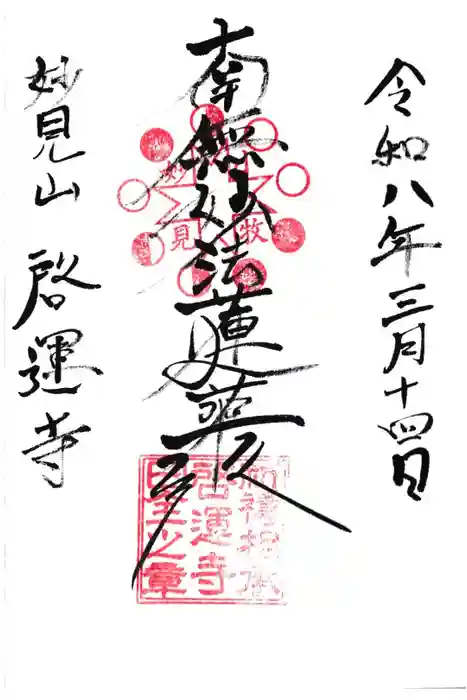 令和八年三月十四日
南無妙法蓮華経
妙見山 啓運寺
妙見
啓運寺
之章